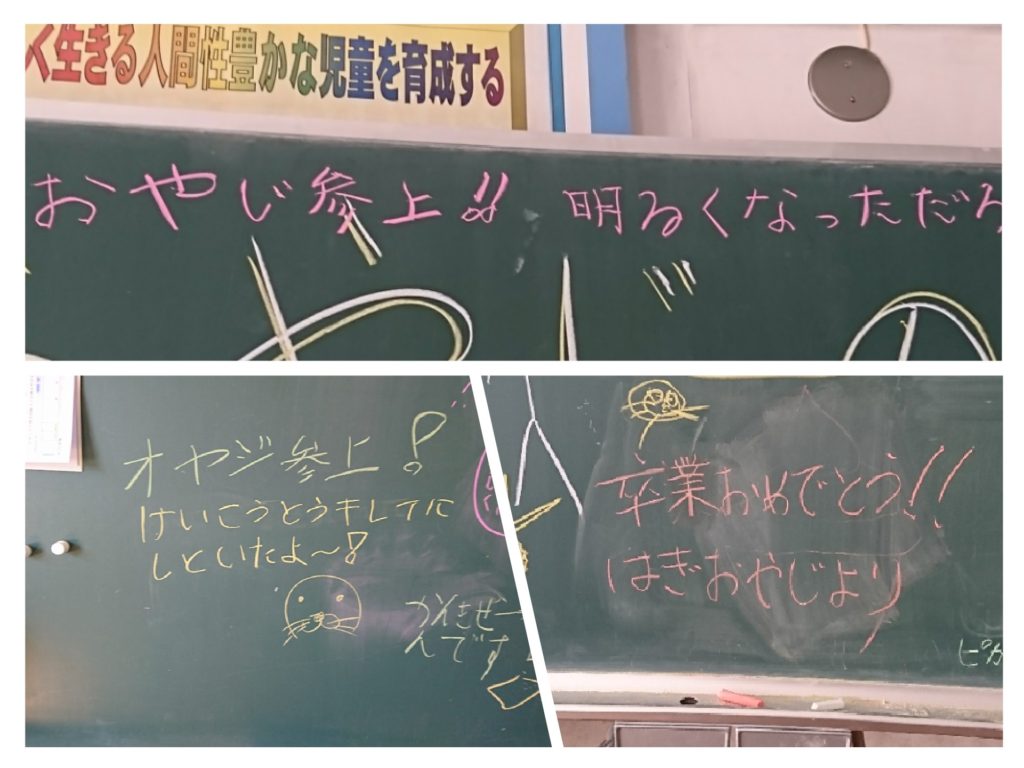 く生きる人間性豊かな児童を育成する
おやじ参上!! 明るくなっただろ
やじの
オヤジ参上!
けいこうとうキレイに
しといたよ〜!
卒業おめでとう!!
はぎおやじより
ピカ